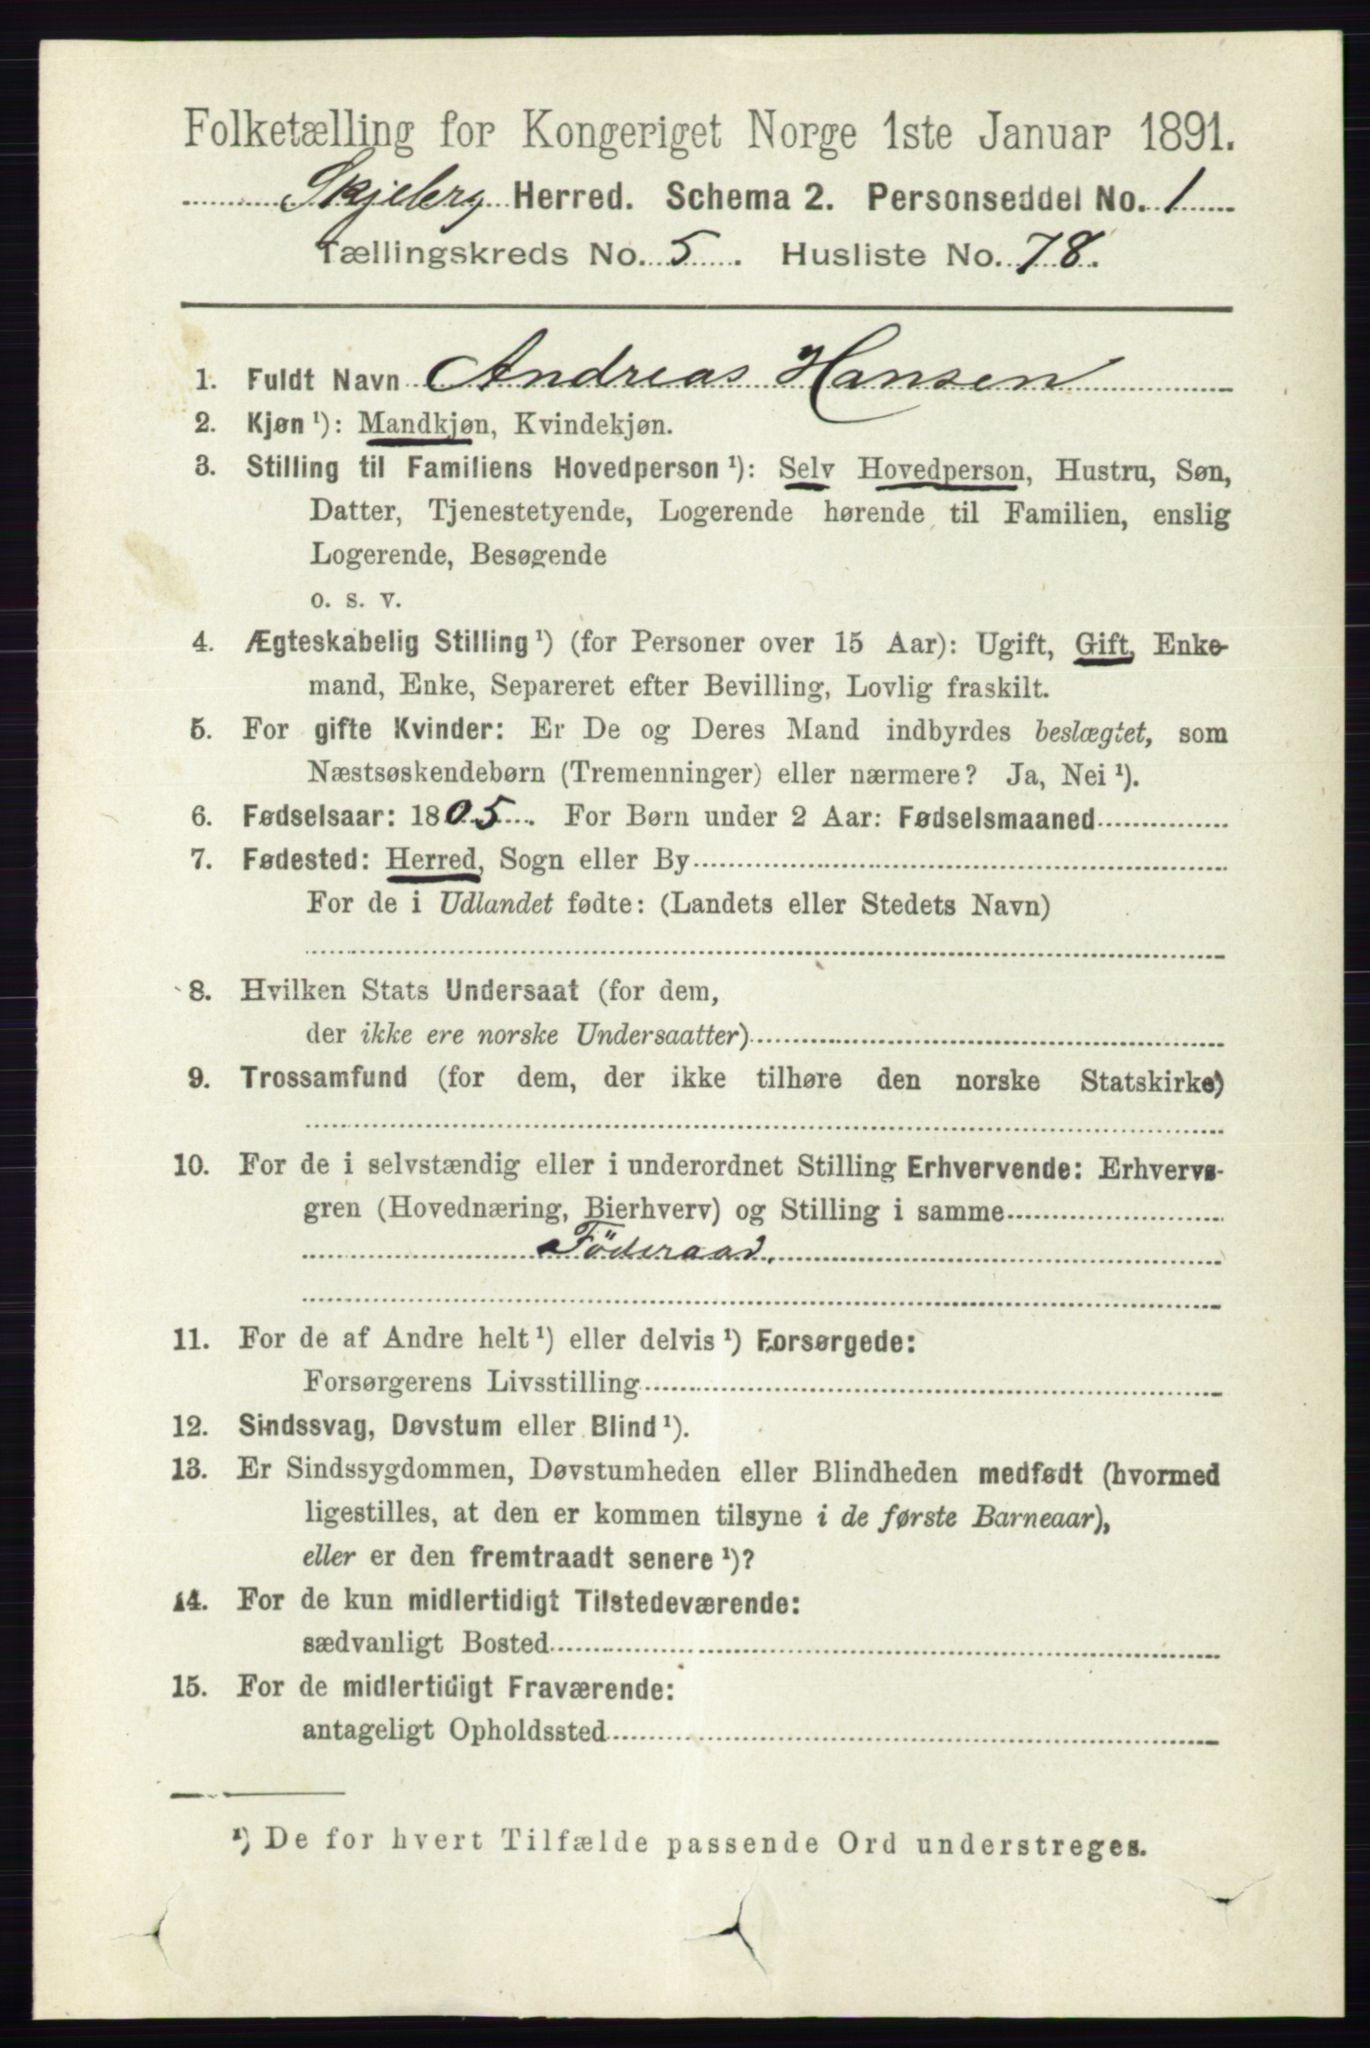 Folketælling for Kongeriget Norge 1ste Januar 1891.
Skjeberg Herred. Schema 2. Personseddel No. 1
Tællingskreds No. 5. Husliste No. 78.
1. Fuldt Navn Andreas Hansen
2. Kjøn ¹): Mandkjøn, Kvindekjøn.
3. Stilling til Familiens Hovedperson ¹): Selv Hovedperson, Hustru, Søn,
Datter, Tjenestetyende, Logerende hørende til Familien, enslig
Logerende, Besøgende
o. s. v.
4. Ægteskabelig Stilling ¹) (for Personer over 15 Aar): Ugift, Gift, Enke-
mand, Enke, Separeret efter Bevilling, Lovlig fraskilt.
5. For gifte Kvinder: Er De og Deres Mand indbyrdes beslægtet, som
Næstsøskendebørn (Tremenninger) eller nærmere? Ja, Nei ¹).
6. Fødselsaar: 1805. For Børn under 2 Aar: Fødselsmaaned
7. Fødested: Herred, Sogn eller By
For de i Udlandet fødte: (Landets eller Stedets Navn)
8. Hvilken Stats Undersaat (for dem,
der ikke ere norske Undersaatter)
9. Trossamfund (for dem, der ikke tilhøre den norske Statskirke)
10. For de i selvstændig eller i underordnet Stilling Erhvervende: Erhvervs-
gren (Hovednæring, Bierhverv) og Stilling i samme
Föderaad.
11. For de af Andre helt ¹) eller delvis ¹) Forsørgede:
Forsørgerens Livsstilling
12. Sindssvag, Døvstum eller Blind ¹).
13. Er Sindssygdommen, Døvstumheden eller Blindheden medfødt (hvormed
ligestilles, at den er kommen tilsyne i de første Barneaar),
eller er den fremtraadt senere ¹)?
14. For de kun midlertidigt Tilstedeværende:
sædvanligt Bosted
15. For de midlertidigt Fraværende:
antageligt Opholdssted
¹) De for hvert Tilfælde passende Ord understreges.